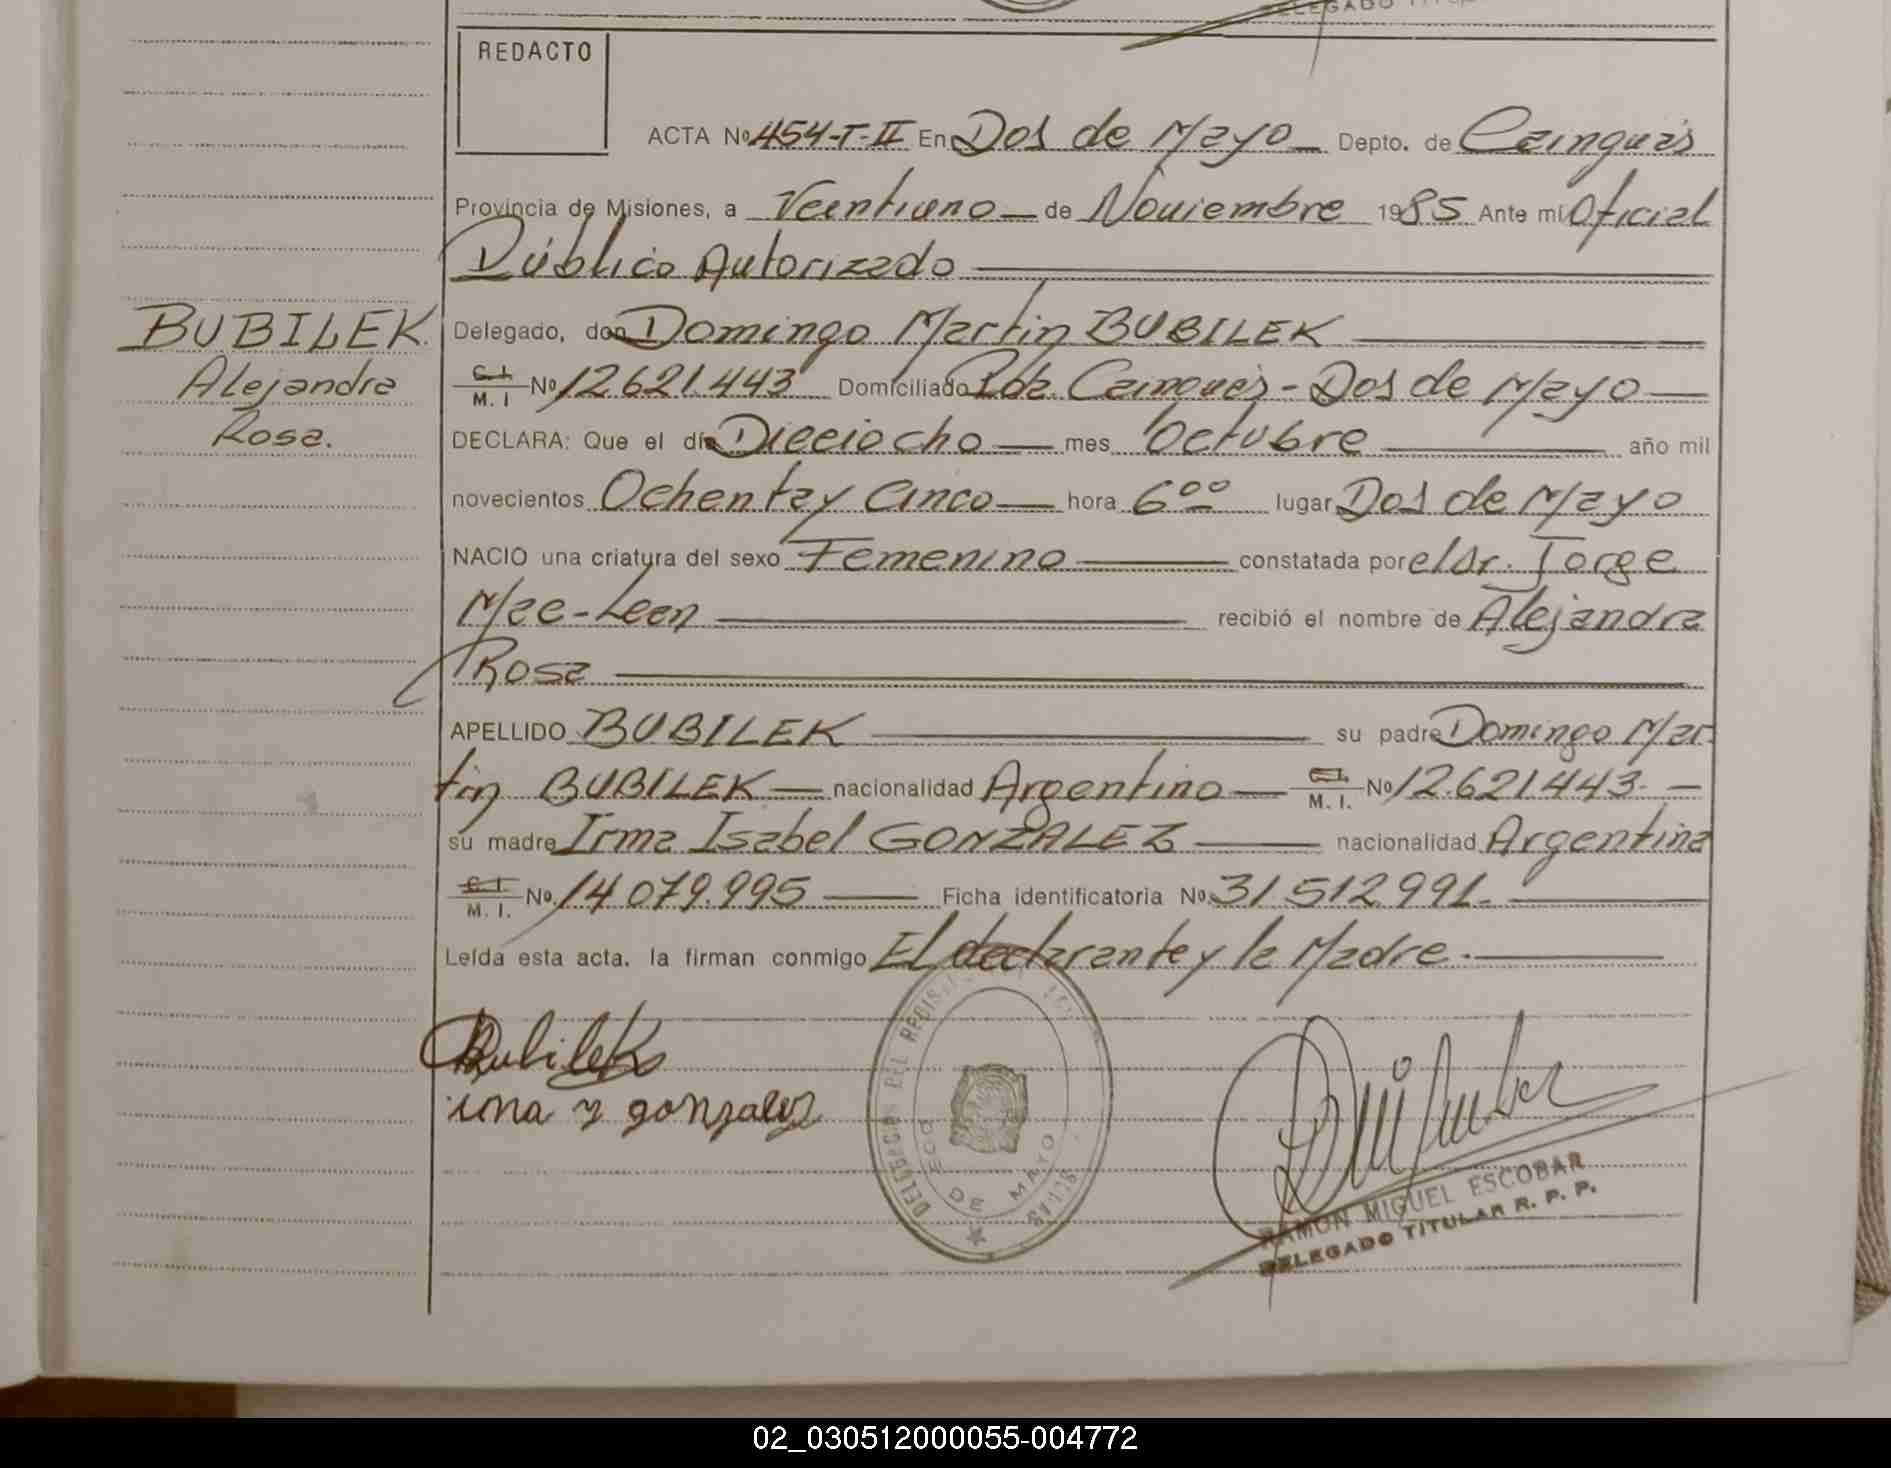 DELEGADO
REDACTO
ACTA Nº 454-T-II En Dos de Mayo Depto. de Cainguás
Provincia de Misiones, a Veintiuno de Noviembre 1985 Ante mi Oficial
Público Autorizado
BUBILEK
Alejandra
Rosa.
Delegado, don Domingo Martin BUBILEK
C.I. M.I Nº 12.621.443 Domiciliado Pdz. Cainguás - Dos de Mayo
DECLARA: Que el día Dieciocho mes Octubre año mil
novecientos Ochenta y Cinco hora 6⁰⁰ lugar Dos de Mayo
NACIO una criatura del sexo Femenino constatada por el dr. Jorge
Mac-Leen recibió el nombre de Alejandra
Rosa
APELLIDO BUBILEK su padre Domingo Mar-
tin BUBILEK nacionalidad Argentino C.I. M.I. Nº 12.621.443.
su madre Irma Isabel GONZALEZ nacionalidad Argentina
C.I. M.I. Nº 14.079.995 Ficha identificatoria Nº 31.512.991.
Leída esta acta, la firman conmigo El declarante y la Madre.
Bubilek
irma y gonzalez
DELEGCO DEL REGIS
DE MAYO
RAMON MIGUEL ESCOBAR
DELEGADO TITULAR R. P. P.
02_030512000055-004772